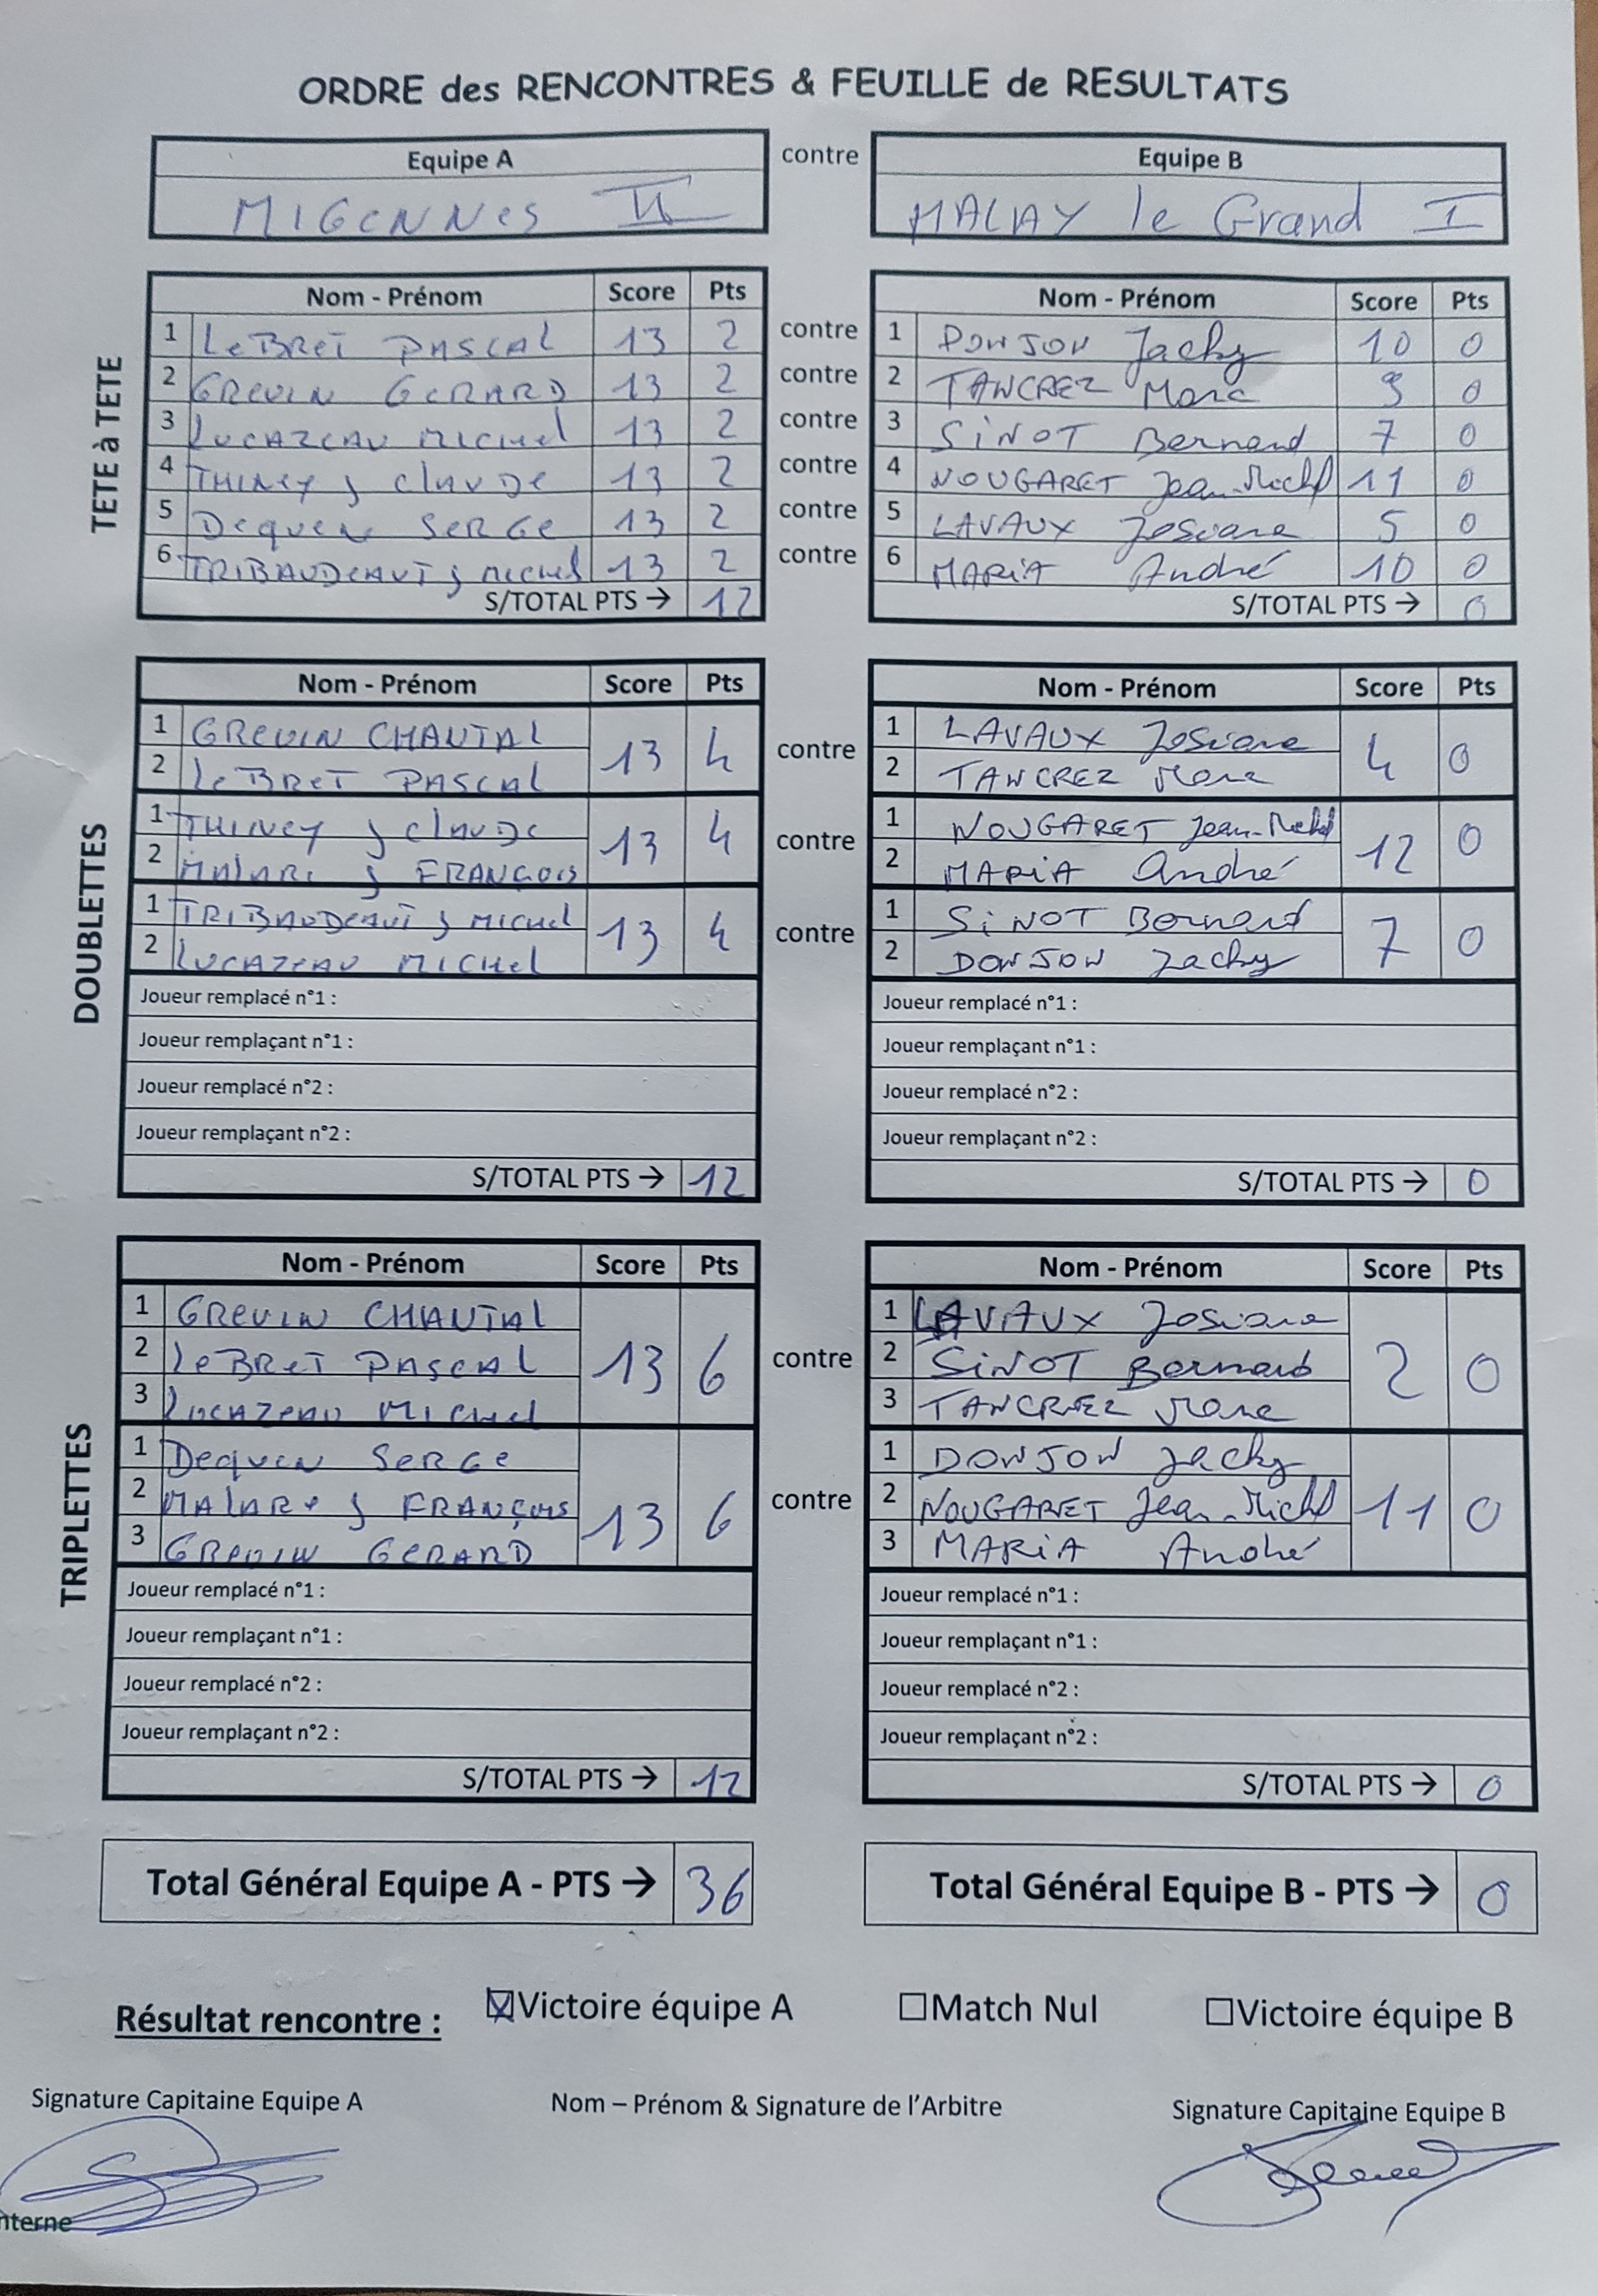 ORDRE des RENCONTRES & FEUILLE de RESULTATS
Equipe A contre Equipe B
MIGENNES II MALAY le Grand I
TETE à TETE
Nom - Prénom Score Pts Nom - Prénom Score Pts
1 LeBRET PASCAL 13 2 contre 1 DONJON Jacky 10 0
2 GREVIN GERARD 13 2 contre 2 TANCREZ Marc 9 0
3 LUCAZEAU MICHEL 13 2 contre 3 SiNOT Bernard 7 0
4 THINEY J CLAUDE 13 2 contre 4 NOUGARET Jean-Michel 11 0
5 DEQUEN SERGE 13 2 contre 5 LAVAUX Josiane 5 0
6 TRIBAUDEAUT J MICHEL 13 2 contre 6 MARiA André 10 0
S/TOTAL PTS → 12 S/TOTAL PTS → 0
DOUBLETTES
Nom - Prénom Score Pts Nom - Prénom Score Pts
1 GREVIN CHANTAL 13 4 contre 1 LAVAUX Josiane 4 0
2 LeBRET PASCAL 2 TANCREZ Marc
1 THINEY J CLAUDE 13 4 contre 1 NOUGARET Jean-Michel 12 0
2 J FRANÇOIS 2 MARiA André
1 TRIBAUDEAUT J MICHEL 13 4 contre 1 SiNOT Bernard 7 0
2 LUCAZEAU MICHEL 2 DONJON Jacky
Joueur remplacé n°1 : Joueur remplacé n°1 :
Joueur remplaçant n°1 : Joueur remplaçant n°1 :
Joueur remplacé n°2 : Joueur remplacé n°2 :
Joueur remplaçant n°2 : Joueur remplaçant n°2 :
S/TOTAL PTS → 12 S/TOTAL PTS → 0
TRIPLETTES
Nom - Prénom Score Pts Nom - Prénom Score Pts
1 GREVIN CHANTAL 1 LAVAUX Josiane
2 LeBRET PASCAL 13 6 contre 2 SiNOT Bernard 2 0
3 LUCAZEAU MICHEL 3 TANCREZ Marc
1 DEQUEN SERGE 1 DONJON Jacky
2 J FRANÇOIS 13 6 contre 2 NOUGARET Jean-Michel 11 0
3 GREVIN GERARD 3 MARiA André
Joueur remplacé n°1 : Joueur remplacé n°1 :
Joueur remplaçant n°1 : Joueur remplaçant n°1 :
Joueur remplacé n°2 : Joueur remplacé n°2 :
Joueur remplaçant n°2 : Joueur remplaçant n°2 :
S/TOTAL PTS → 12 S/TOTAL PTS → 0
Total Général Equipe A - PTS → 36 Total Général Equipe B - PTS → 0
Résultat rencontre : ☒Victoire équipe A ☐Match Nul ☐Victoire équipe B
Signature Capitaine Equipe A Nom – Prénom & Signature de l'Arbitre Signature Capitaine Equipe B
nterne